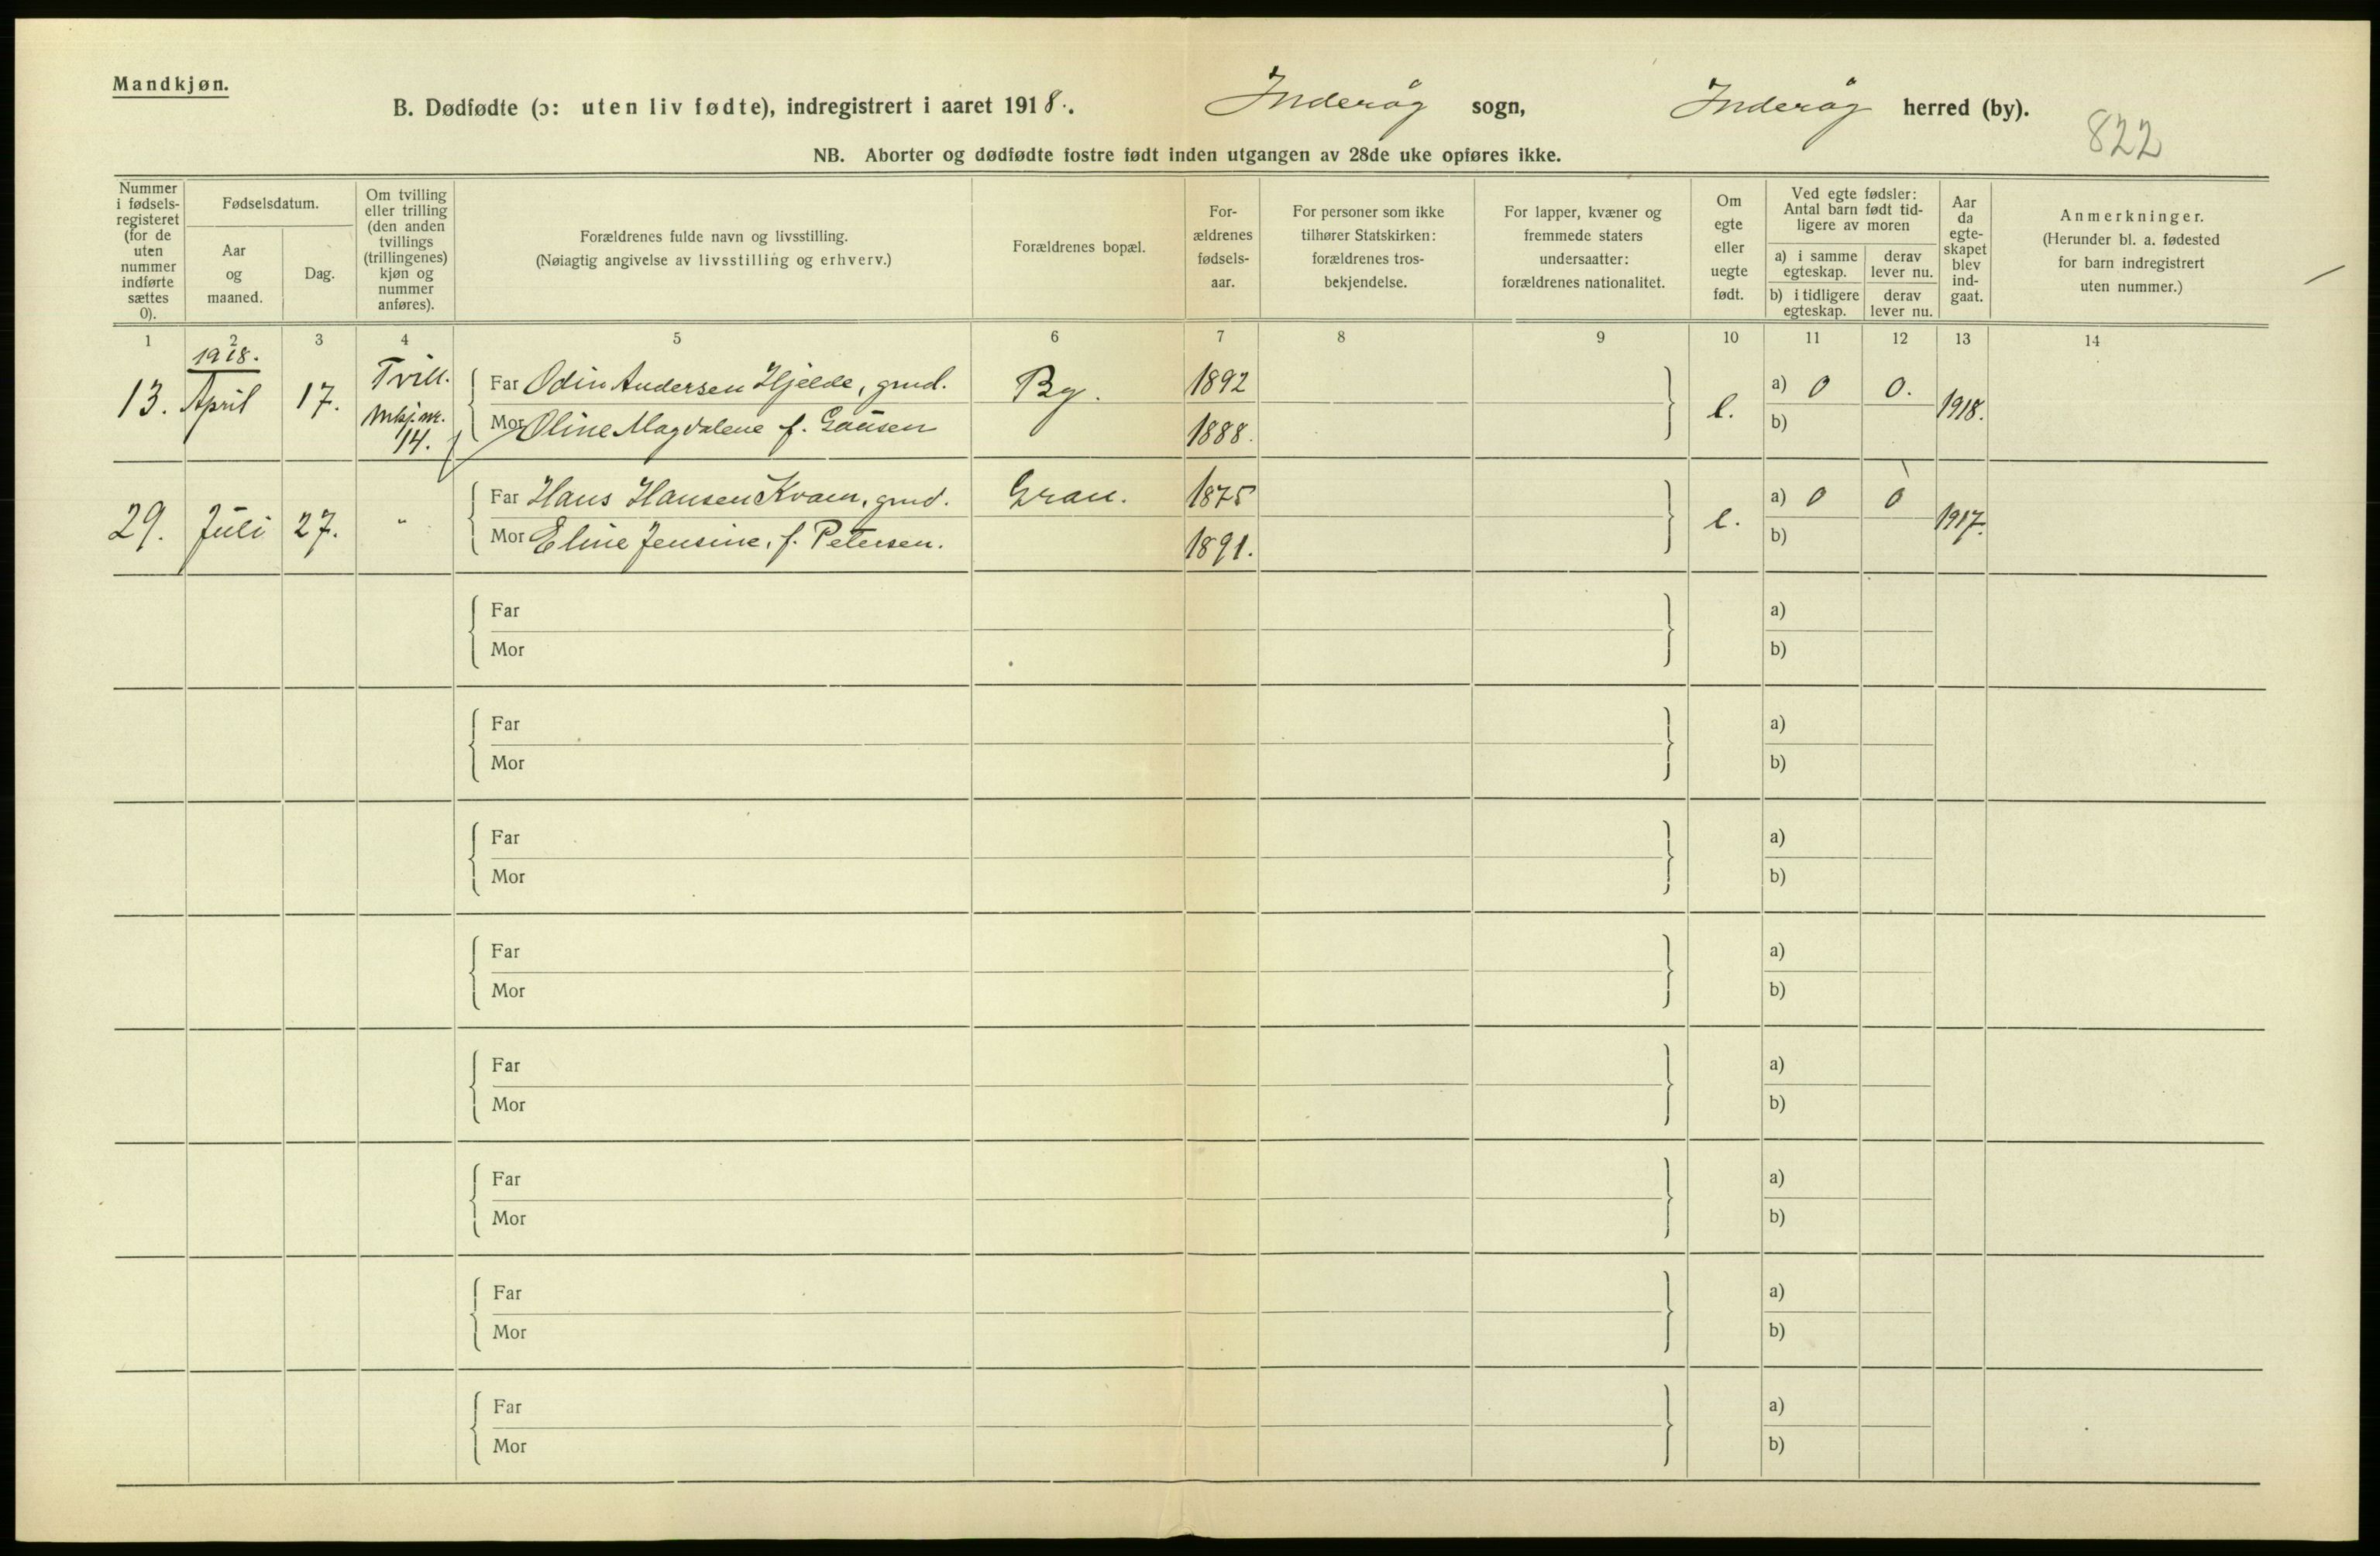 Mandkjøn.
B. Dødfødte (ɔ: uten liv fødte), indregistrert i aaret 1918. Inderøy sogn, Inderøy herred (by).
822
NB. Aborter og dødfødte fostre født inden utgangen av 28de uke opføres ikke.
Nummer i fødsels-registeret (for de uten nummer indførte sættes 0).
Fødselsdatum.
Aar og maaned.
Dag.
Om tvilling eller trilling (den anden tvillings (trillingenes) kjøn og nummer anføres).
Forældrenes fulde navn og livsstilling.
(Nøiagtig angivelse av livsstilling og erhverv.)
Forældrenes bopæl.
For-ældrenes fødsels-aar.
For personer som ikke tilhører Statskirken: forældrenes tros-bekjendelse.
For lapper, kvæner og fremmede staters undersaatter: forældrenes nationalitet.
Om egte eller uegte født.
Ved egte fødsler: Antal barn født tid-ligere av moren
a) i samme egteskap.
derav lever nu.
b) i tidligere egteskap.
derav lever nu.
Aar da egte-skapet blev ind-gaat.
Anmerkninger.
(Herunder bl. a. fødested for barn indregistrert uten nummer.)
1 2 3 4 5 6 7 8 9 10 11 12 13 14
1918.
13. April 17. Tvill. Mkj. nr. 14. Far Odin Andersen Hjelde, grud. By. 1892 e. a) 0 0. 1918.
Mor Oline Magdalene f. Gausen 1888. b)
29. Juli 27. " Far Hans Hansen Kvam, grud. Gran. 1875 e. a) 0 0 1917.
Mor Eline Jensine, f. Petersen. 1891. b)
Far a)
Mor b)
Far a)
Mor b)
Far a)
Mor b)
Far a)
Mor b)
Far a)
Mor b)
Far a)
Mor b)
Far a)
Mor b)
Far a)
Mor b)